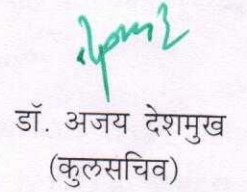 डॉ. अजय देशमुख
(कुलसचिव)